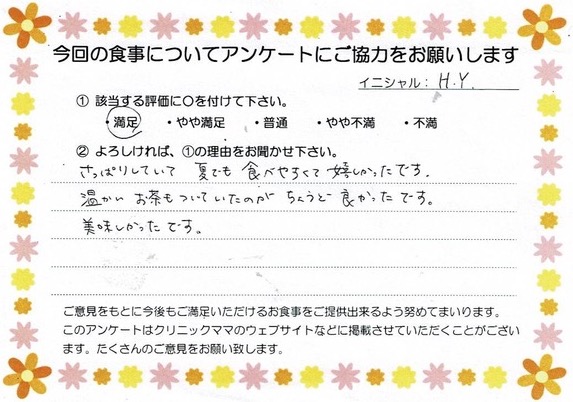 今回の食事についてアンケートにご協力をお願いします
イニシャル: H.Y.
① 該当する評価に〇を付けて下さい。
・満足 ・やや満足 ・普通 ・やや不満 ・不満
② よろしければ、①の理由をお聞かせ下さい。
さっぱりしていて 夏でも 食べやすくて 嬉しかったです.
温かい お茶もついていたのが ちょうど 良かったです。
美味しかったです。
ご意見をもとに今後もご満足いただけるお食事をご提供出来るよう努めてまいります。
このアンケートはクリニックママのウェブサイトなどに掲載させていただくことがござい
ます。たくさんのご意見をお願い致します。